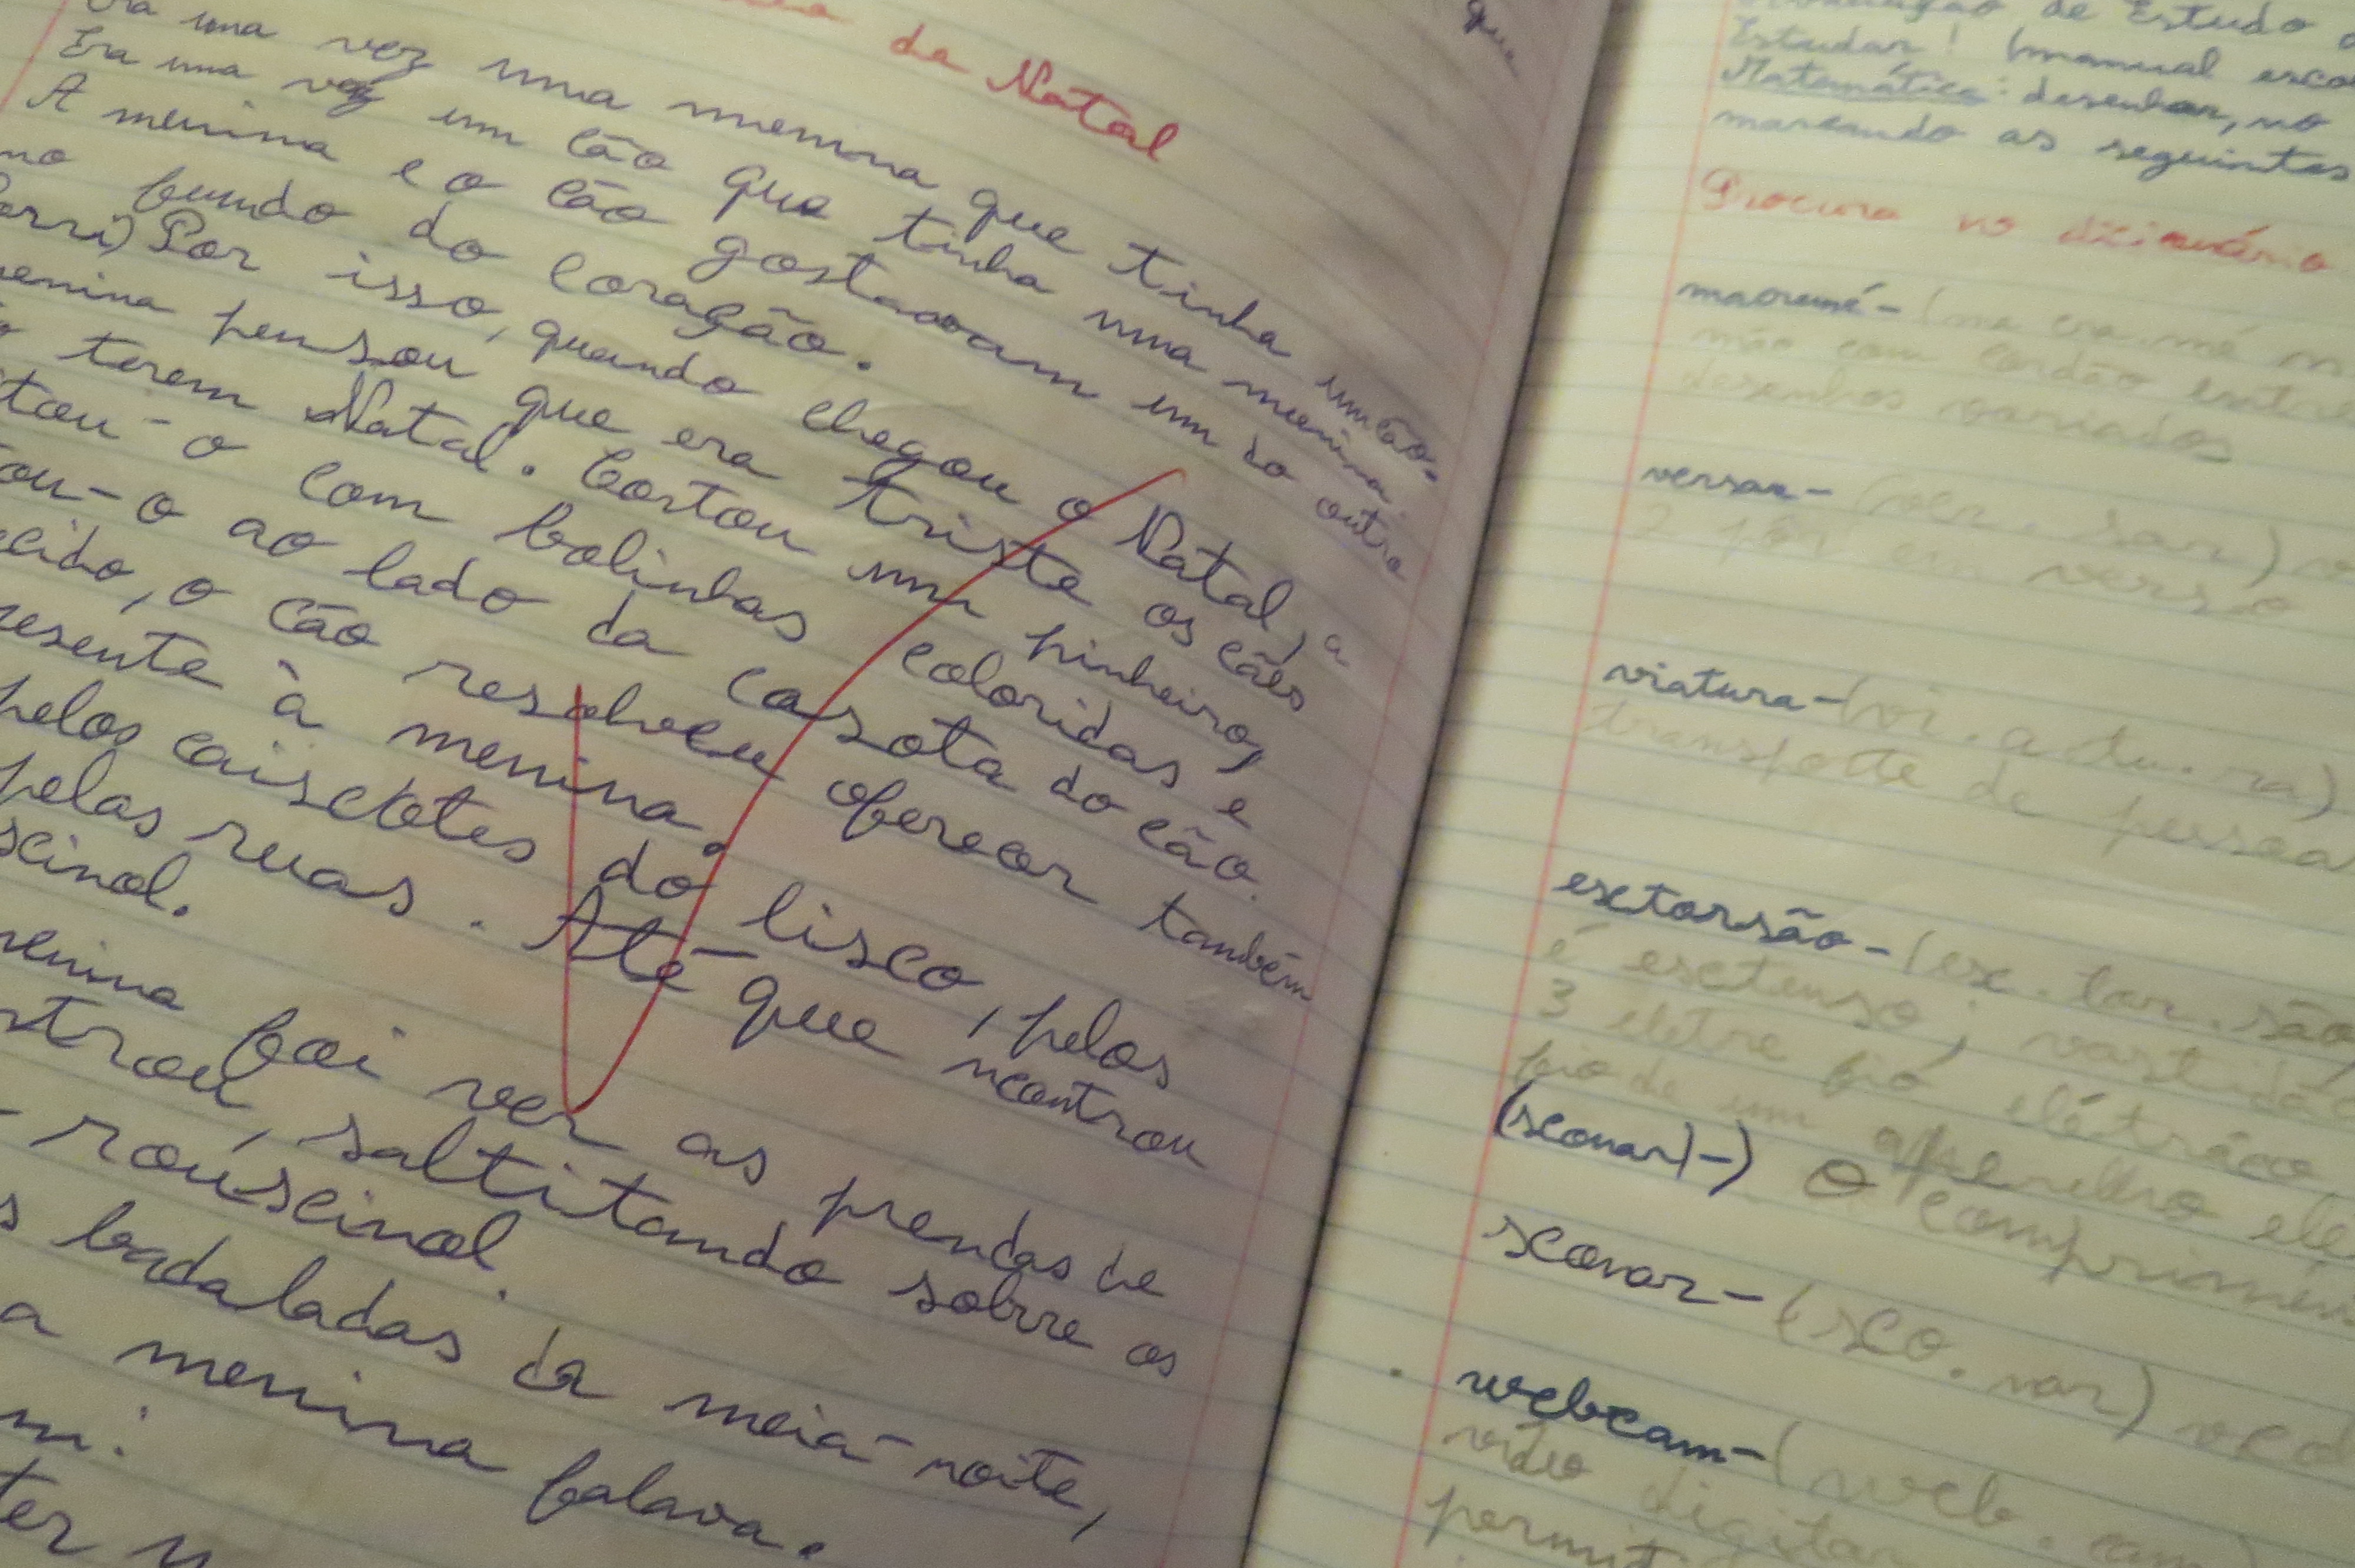 da Natal
Era uma vez uma menina que tinha um cão.
Era uma vez um cão que tinha uma menina.
A menina e o cão gostavam um do outro
no fundo do coração.
Por isso, quando chegou o Natal, a
menina pensou que era triste os cães
terem Natal. Cortou um pinheiro,
tou-o com bolinhas coloridas e
ou-o ao lado da casota do cão.
cido, o cão resolveu oferecer também
resente à menina.
pelos caixotes do lixo, pelos
pelas ruas. Até que
xinol.
menina foi ver as prendas de
trou, saltitando sobre os
rouxinol.
s badaladas da meia-noite,
a menina falava.
ter
que
de Estudo
Estudar! (manual esco
Matemática: desenhar, no
marcando as seguintes
Procura no dicionário
macramé-
mão com cordão
desenhos variados
versar-(ver.sar)
2 pôr em verso
viatura-(vi.a.tu.ra)
transporte de pessoa
extorsão-(ex.tor.são
é extenso; vastidã
3
fio de um aparelho ele
(scanar)-) O
scanar-
webcam-(web.cam)
vídeo digital